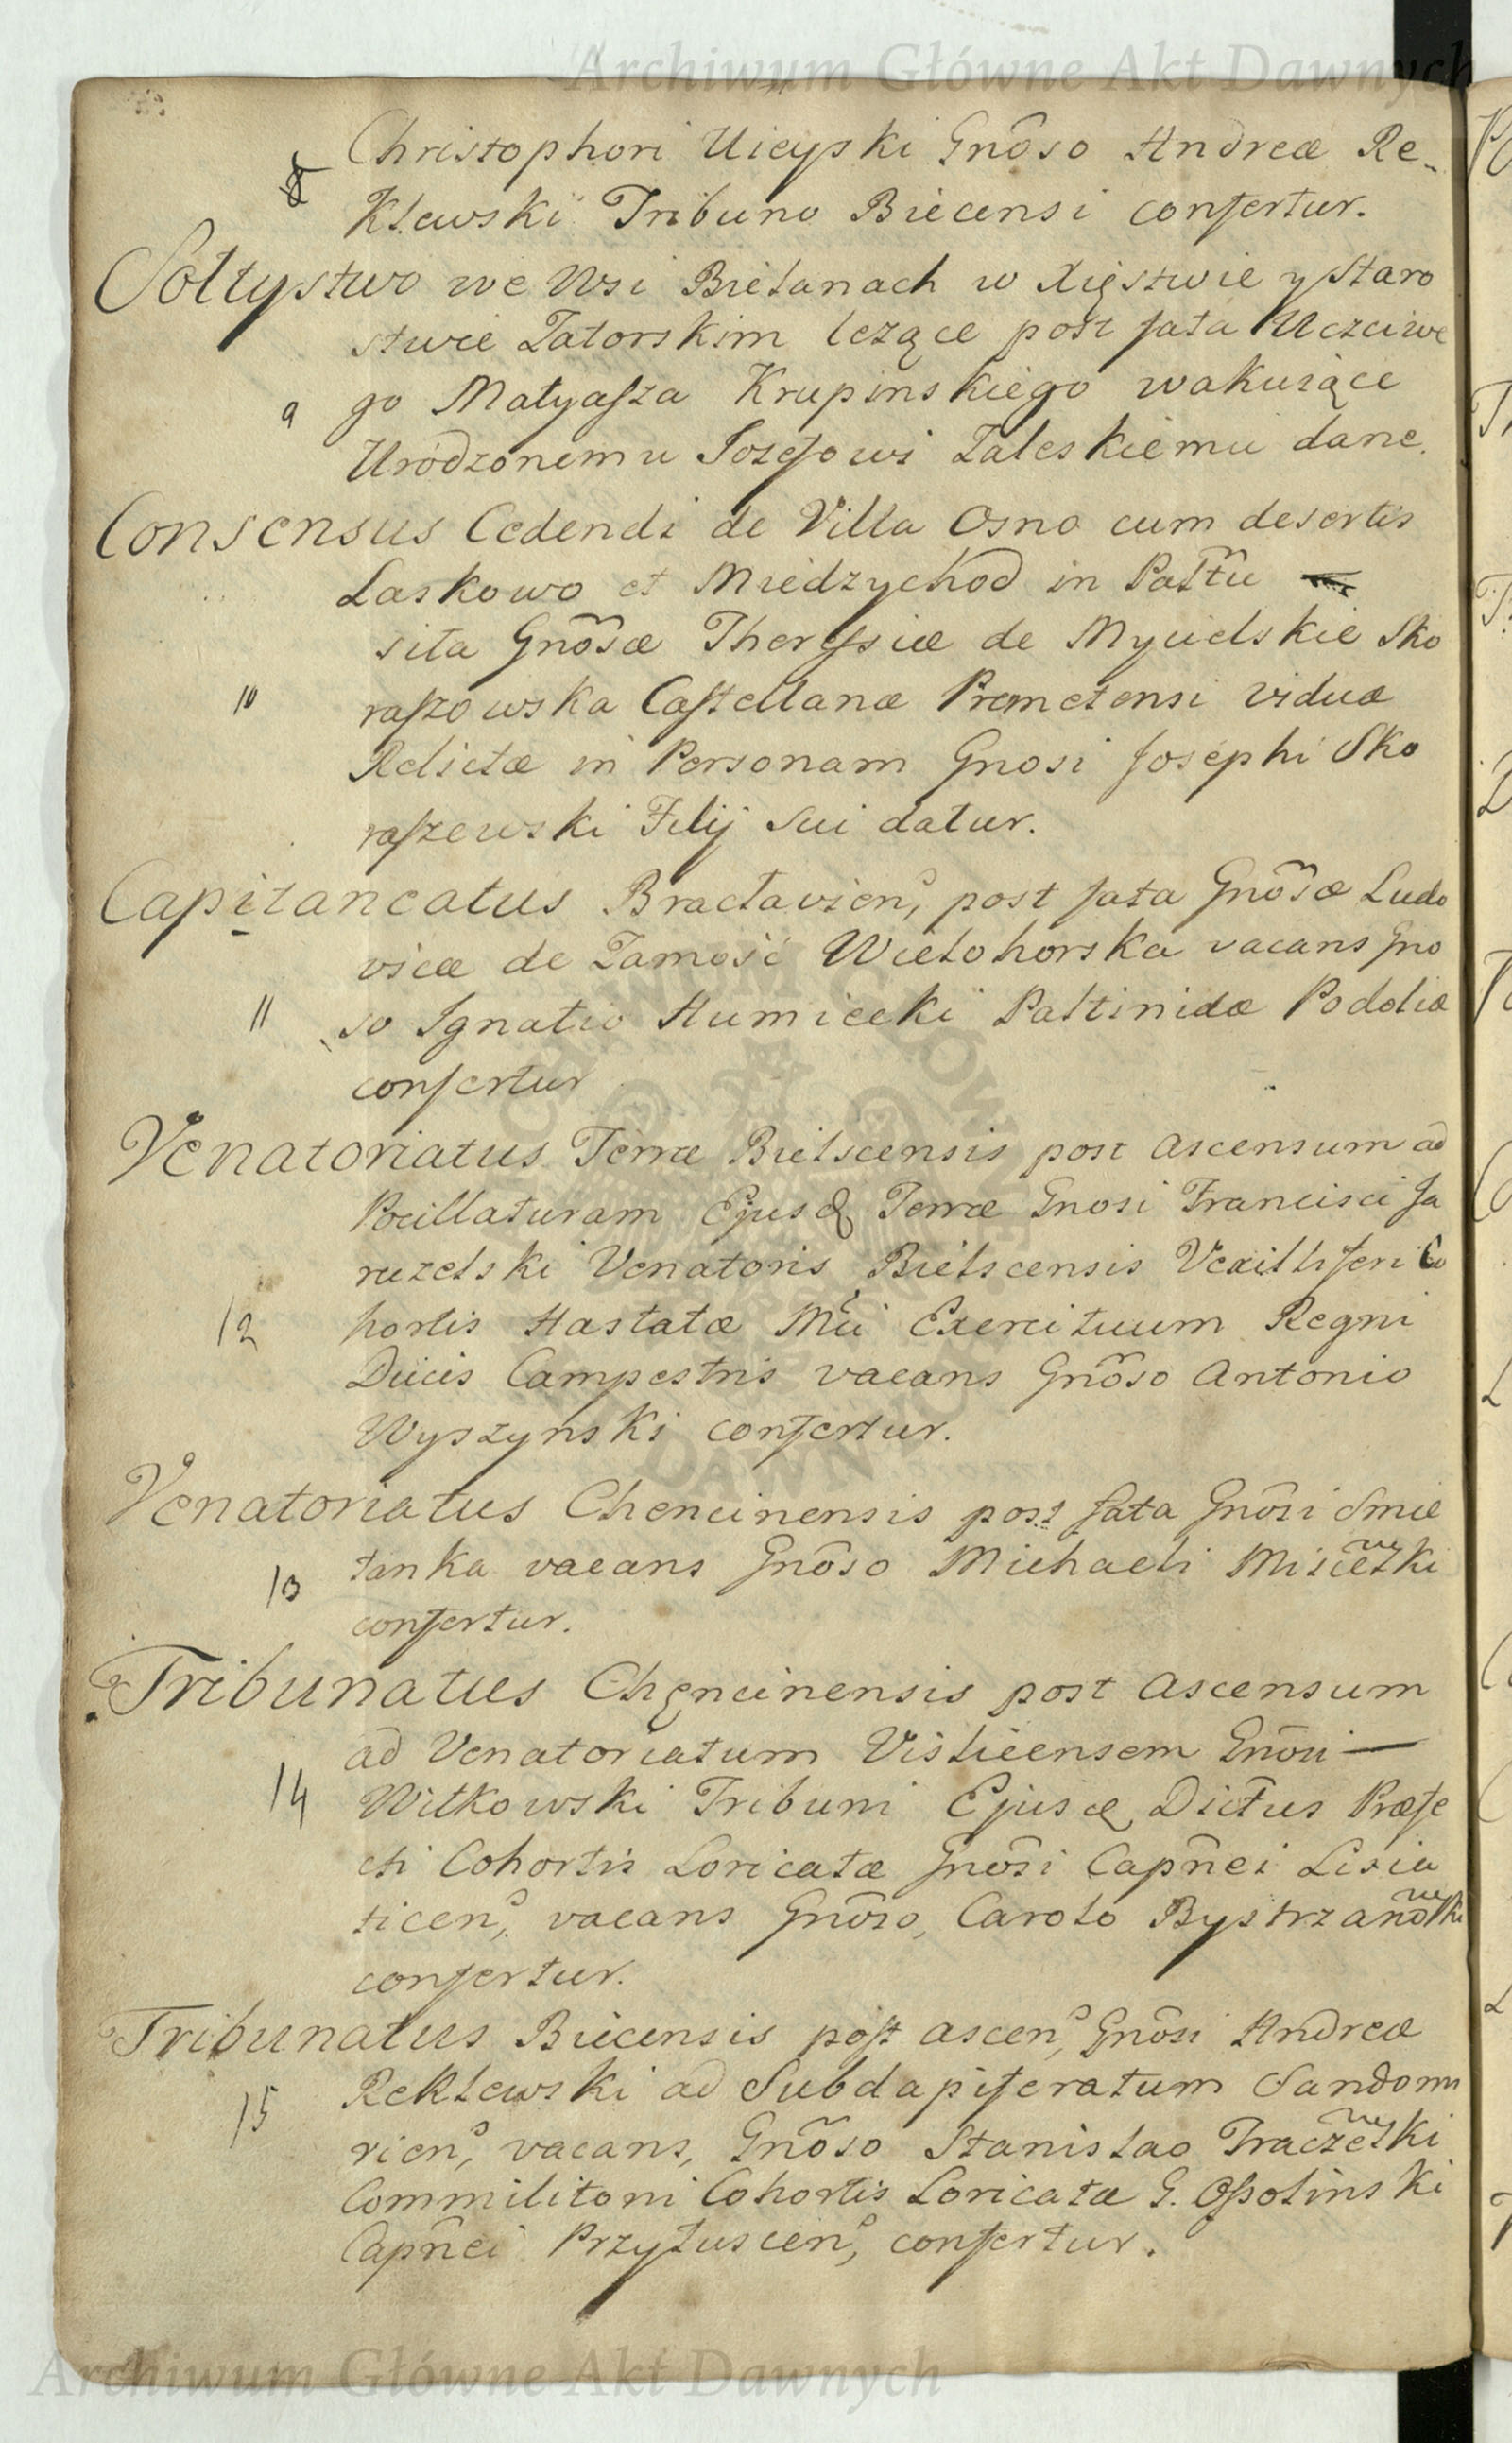 Archiwum Główne Akt Dawnych
Christophori Uieyski Gnõso Andreæ Re-
8
Klewski Tribuno Biecensi confertur.
Sołtystwo we Wsi Bielanach w Xięstwie y Staro
stwie Zatorskim lezące post fata Uczciwe
9 go Matyaszа Krupinskiego wakuiące
Urodzonemu Jozefowi Zaleskiemu dane.
Consensus Cedendi de Villa Osno cum desertis
Laskowo et Miedzychod in Paltũ
sita Gnõsæ Theresiæ de Mycielskie Sko
10 raszowska Castellanæ Premetensi viduæ
Relictæ in Personam Gnosi Josephi Sko
raszewski Filij sui datur.
Capitaneatus Braclavien, post fata Gnõsæ Ludo
vicæ de Zamość Wielohorska vacans Gno
11 so Ignatio Humiecki Paltinidæ Podoliæ
confertur
Venatoriatus Terræ Bielscensis post ascensum ad
Pocillaturam Ejusq Terræ Gnosi Francisci Ja
ruzelski Venatoris Bielscensis Vexilliferi Co
12 hortis Hastatæ Mci Exercituum Regni
Ducis Campestris vacans Gnõso Antonio
Wyszynski confertur.
Venatoriatus Chencinensis post fata Gnõsi Smie
13 tanka vacans Gnõso Michaeli
confertur.
Tribunatus Chęncinensis post ascensum
ad Venatoriatum Visliceensem Gnõsi —
14 Witkowski Tribuni Ejusq Dictus Præfe
cti Cohortis Loricatæ Gnõsi Capñei Lisia
ticen, vacans Gnõso, Carolo Bystrzanõwski
confertur.
Tribunatus Biecensis post ascen, Gnõsi Andreæ
Reklewski ad Subdapiferatum Sandomi
15 rien, vacans, Gnõso Stanislao
Commilitoni Cohortis Loricatæ G. Ossolinski
Capñei Przytuscen, confertur.
Archiwum Główne Akt Dawnych